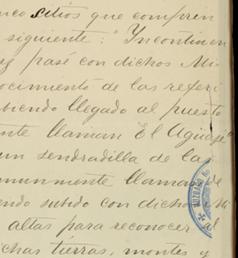 nco sitios que compren
siguiente: "Incontinen
y pasé con dichos Mi
ocimiento de las referi
biendo llegado al puesto
nte llaman El Aguaje
un sendradilla de la
munmente llaman de
endo subido con dicho
altas para reconocer el
chas tierras, montes y